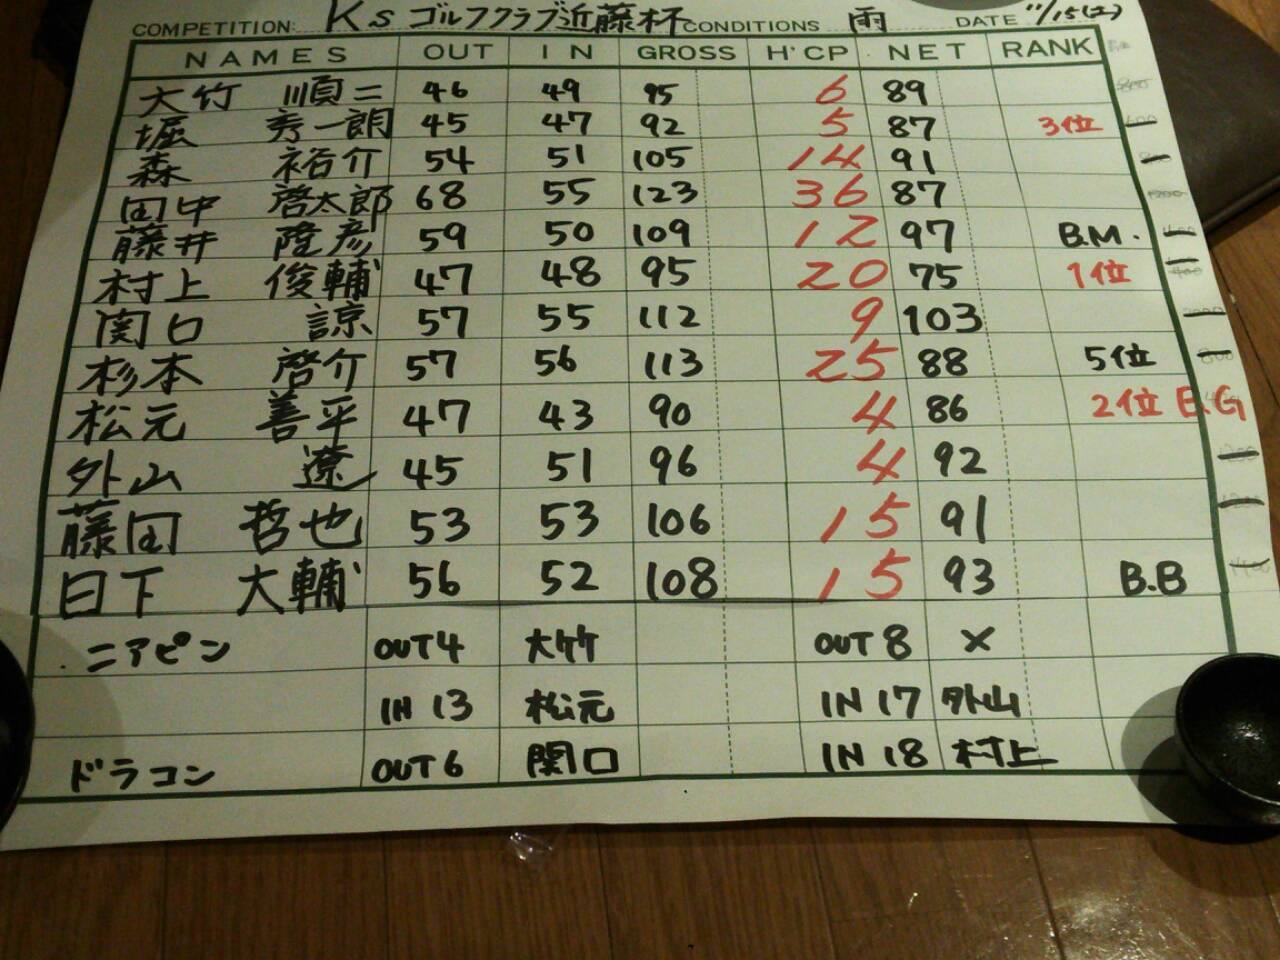 COMPETITION: Ksゴルフクラブ近藤杯 CONDITIONS 雨 DATE 11/15(土)
NAMES OUT IN GROSS H'CP NET RANK
大竹 順二 46 49 95 6 89
堀 秀一朗 45 47 92 5 87 3位
森 裕介 54 51 105 14 91
田中 啓太郎 68 55 123 36 87
藤井 隆彦 59 50 109 12 97 B.M.
村上 俊輔 47 48 95 20 75 1位
関口 諒 57 55 112 9 103
杉本 啓介 57 56 113 25 88 5位
松元 善平 47 43 90 4 86 2位 B.G
外山 遼 45 51 96 4 92
藤田 哲也 53 53 106 15 91
日下 大輔 56 52 108 15 93 B.B
ニアピン OUT4 大竹 OUT8 ×
IN 13 松元 IN 17 外山
ドラコン OUT6 関口 IN 18 村上